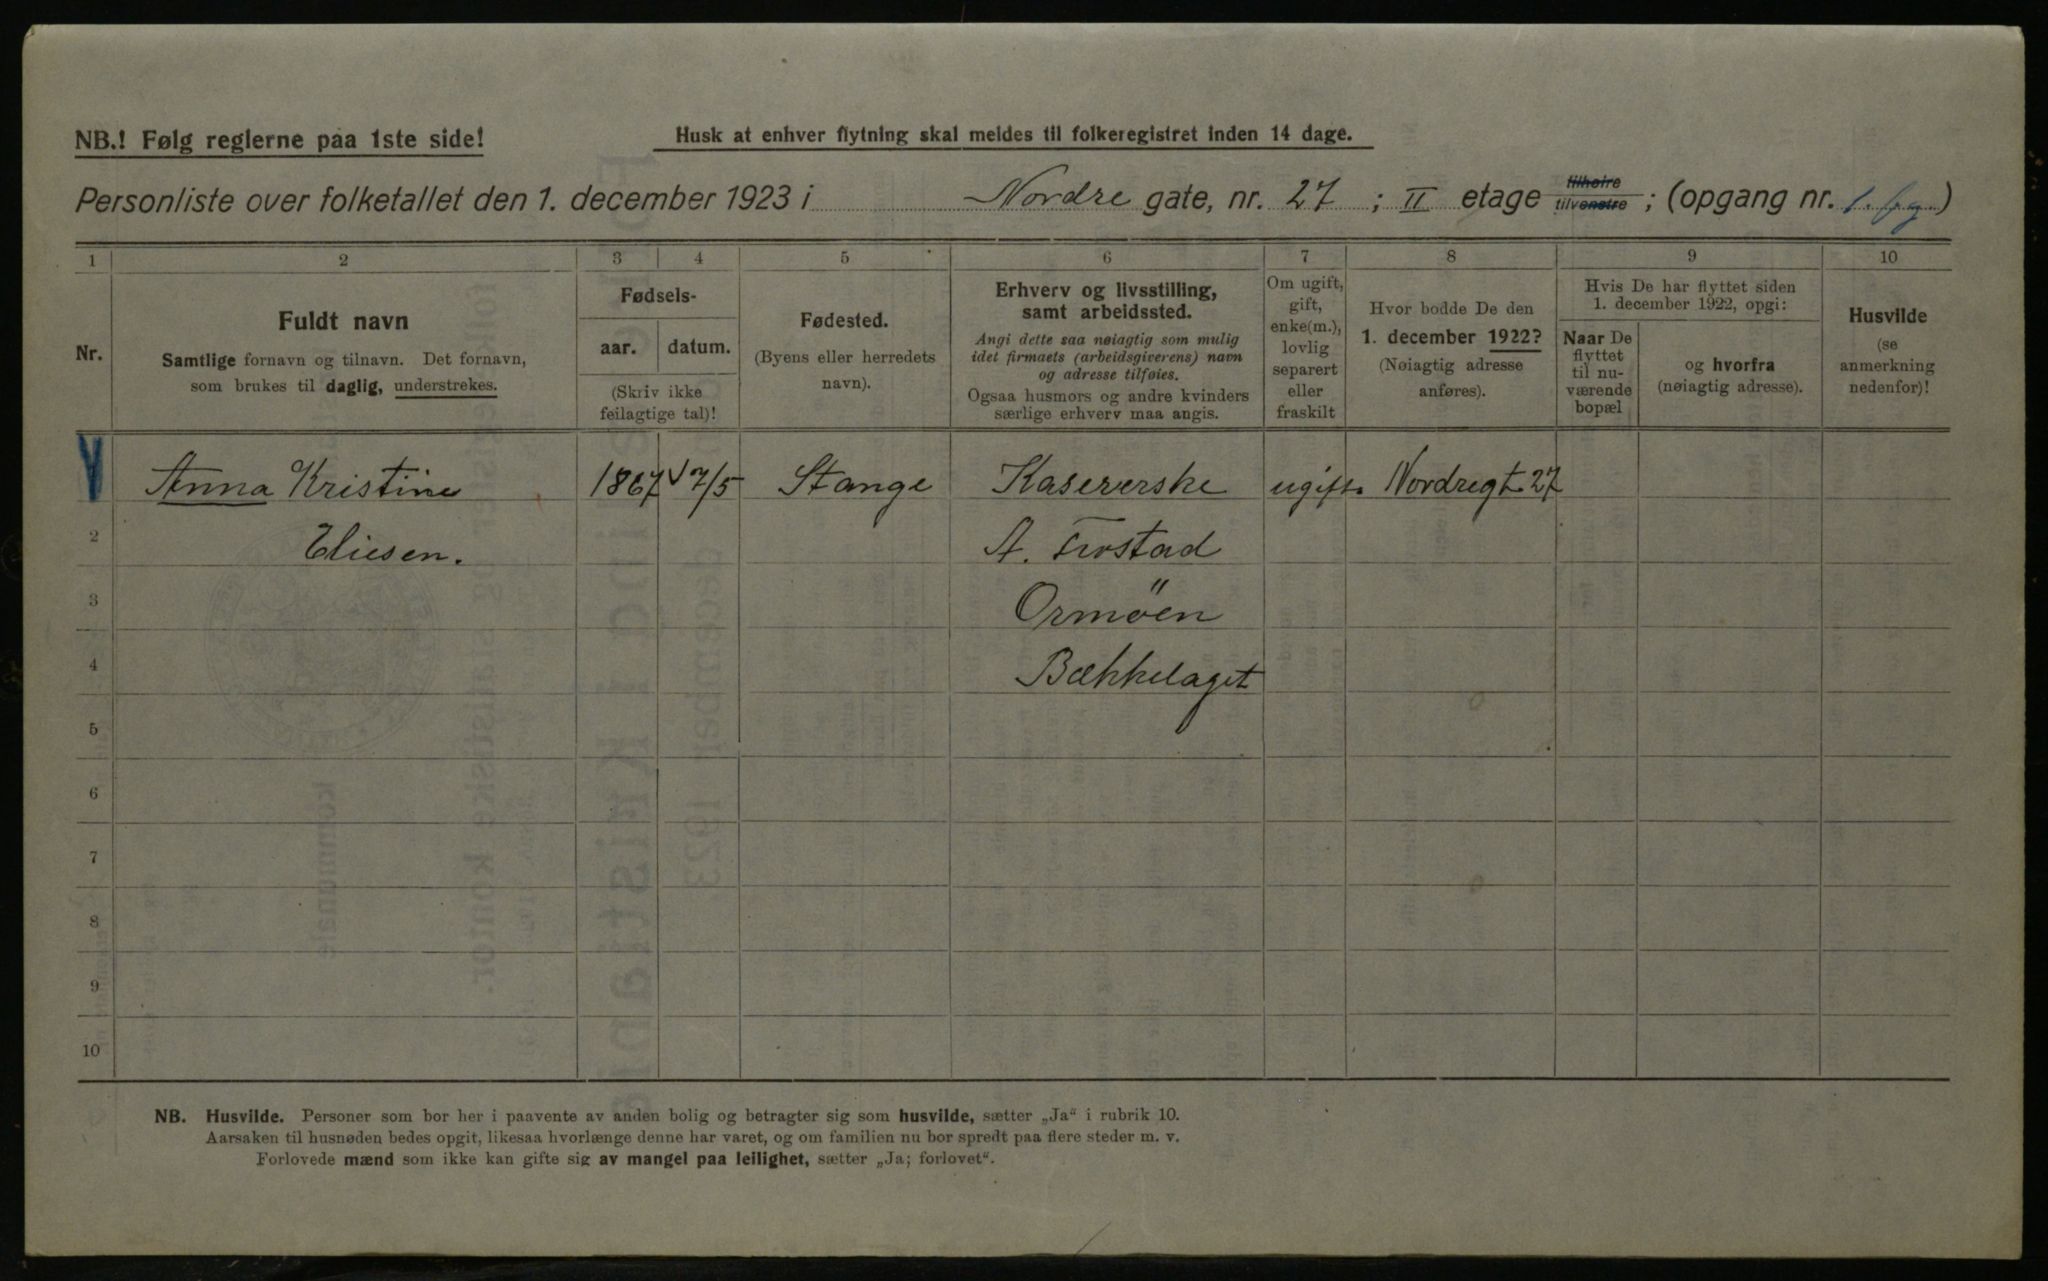 NB.! Følg reglerne paa 1ste side!
Husk at enhver flytning skal meldes til folkeregistret inden 14 dage.
Personliste over folketallet den 1. december 1923 i Nordre gate, nr. 27 ; II etage tilhøire tilvenstre ; (opgang nr. 1. )
1 2 3 4 5 6 7 8 9 10
Nr.
Fuldt navn
Samtlige fornavn og tilnavn. Det fornavn,
som brukes til daglig, understrekes.
Fødsels-
aar. datum.
(Skriv ikke
feilagtige tal)!
Fødested.
(Byens eller herredets
navn).
Erhverv og livsstilling,
samt arbeidssted.
Angi dette saa nøiagtig som mulig
idet firmaets (arbeidsgiverens) navn
og adresse tilføies.
Ogsaa husmors og andre kvinders
særlige erhverv maa angis.
Om ugift,
gift,
enke(m.),
lovlig
separert
eller
fraskilt
Hvor bodde De den
1. december 1922?
(Nøiagtig adresse
anføres).
Hvis De har flyttet siden
1. december 1922, opgi:
Naar De
flyttet
til nu-
værende
bopæl
og hvorfra
(nøiagtig adresse).
Husvilde
(se
anmerkning
nedenfor)!
Anna Kristine 1867 7/5 Stange Kasererske ugift. Nordregt. 27
2 Eliesen. A. Frostad
3 Ormöen
4 Bækkelaget
5
6
7
8
9
10
NB. Husvilde. Personer som bor her i paavente av anden bolig og betragter sig som husvilde, sætter „Ja“ i rubrik 10.
Aarsaken til husnøden bedes opgit, likesaa hvorlænge denne har varet, og om familien nu bor spredt paa flere steder m. v.
Forlovede mænd som ikke kan gifte sig av mangel paa leilighet, sætter „Ja; forlovet“.